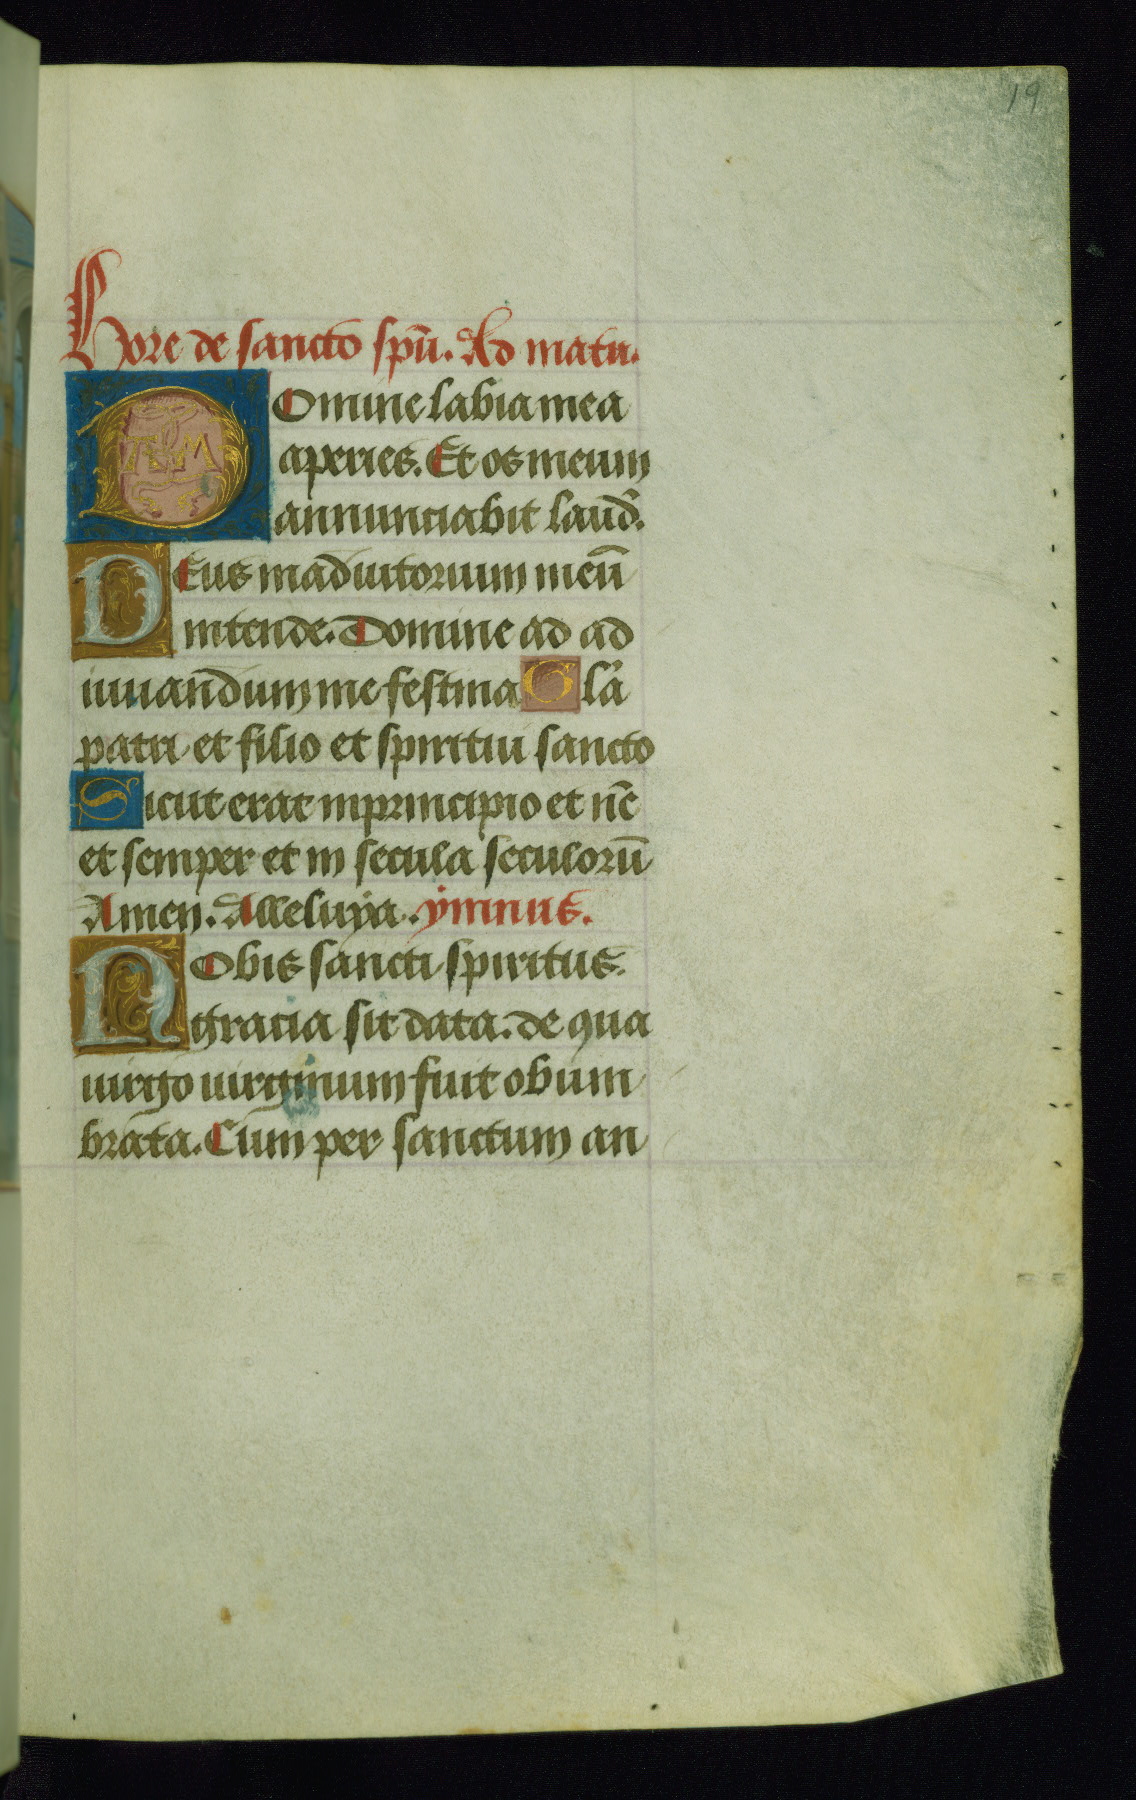 19
Hore de sancto spū. Ad matu.
Domine labia mea
aperies. Et os meum
annunciabit laud̉.
Deus in adiutorium meū
intende. Domine ad ad
iuuandum me festina Glā
patri et filio et spiritui sancto
Sicut erat in principio et nc̄
et semper et in secula seculorū
Amen. Alleluya. ymnus.
Nobis sancti spiritus
gracia sit data. de qua
uirgo uirginum fuit obum
brata. Cum per sanctum an